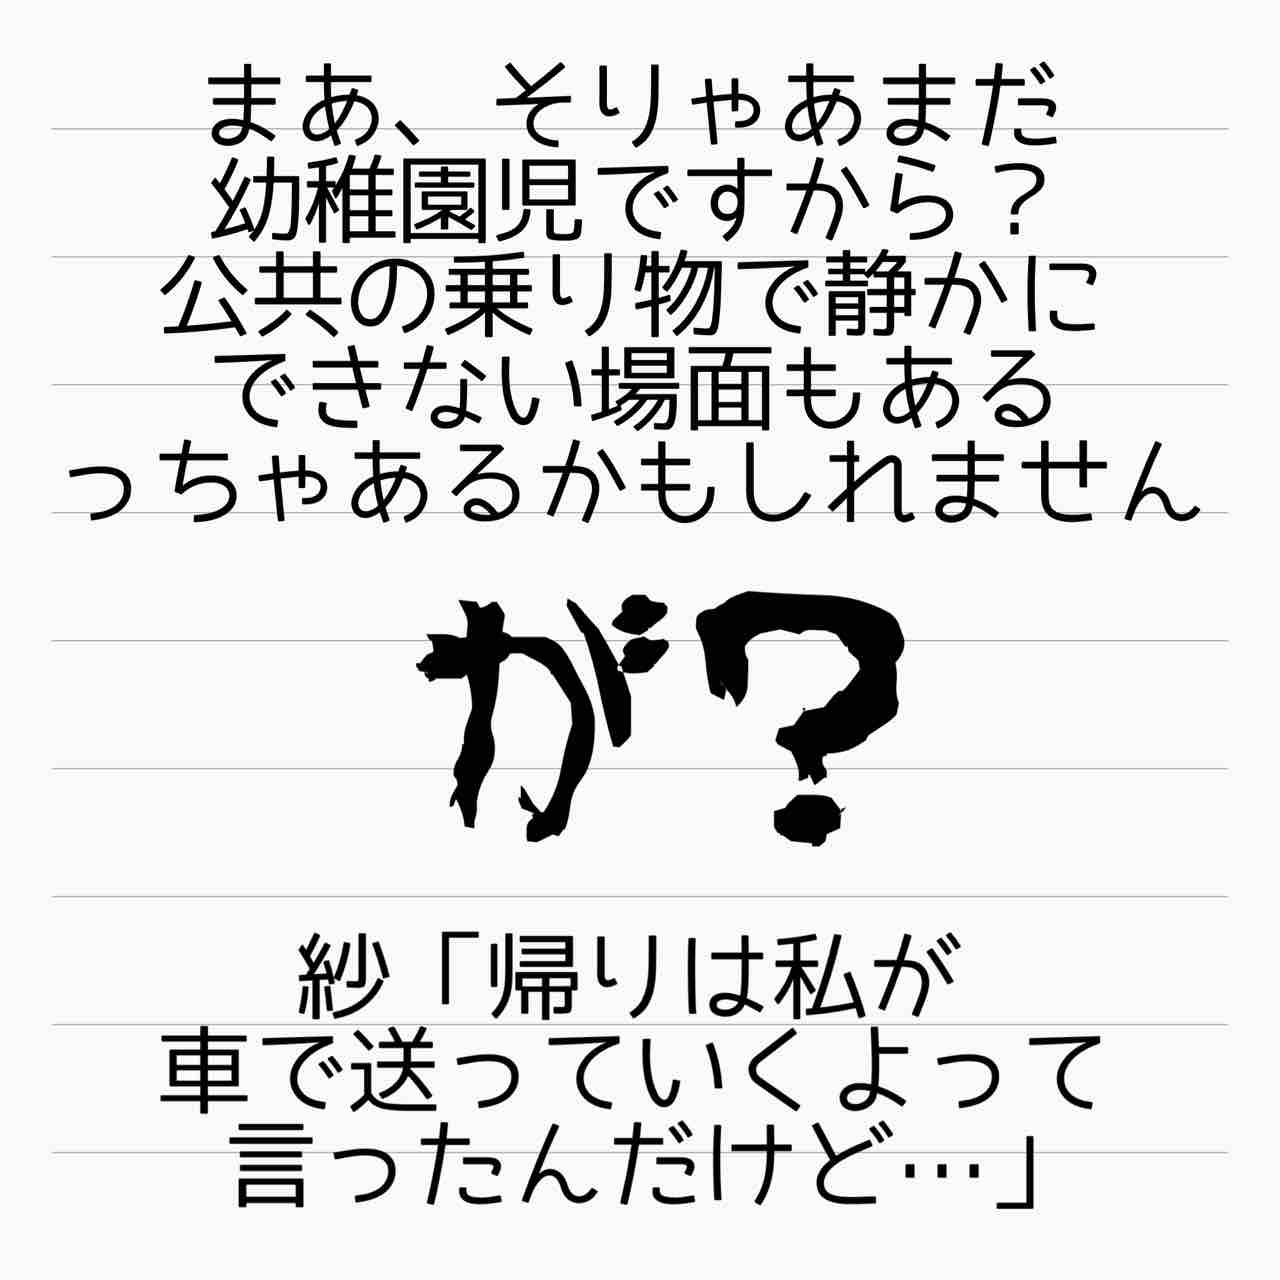 まあ、そりゃあまだ
幼稚園児ですから？
公共の乗り物で静かに
できない場面もある
っちゃあるかもしれません
が？
紗「帰りは私が
車で送っていくよって
言ったんだけど…」